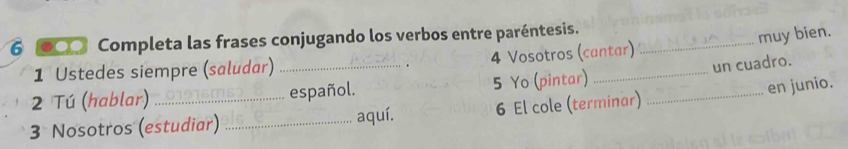 6 Completa las frases conjugando los verbos entre paréntesis.
1 Ustedes siempre (saludar) ____________.
2 Tú (hablar) ____________ español.
3 Nosotros (estudiar) ____________ aquí.
4 Vosotros (cantar) ____________ muy bien.
5 Yo (pintar) ____________ un cuadro.
6 El cole (terminar) ____________ en junio.